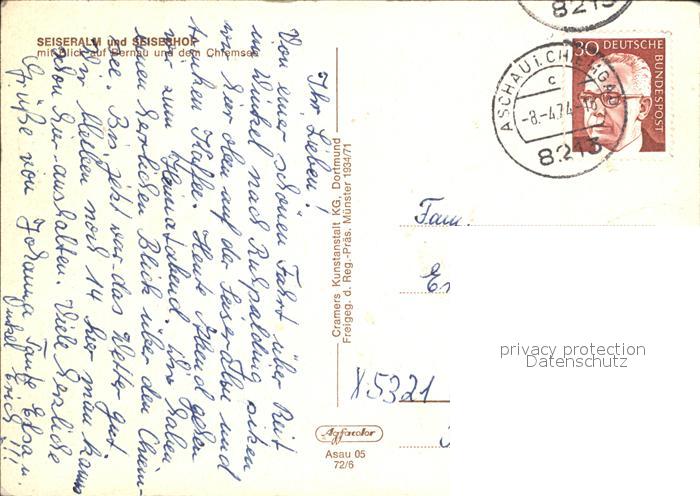 SEISERALM und SEISERHOF
mit Blick auf Bernau und dem Chiemsee
Ihr Lieben!
Von einer schönen Fahrt über Reit
im Winkel nach Ruhpolding sitzen
wir hier oben auf der Seiser Alm und
trinken Kaffee. Heute Abend gehen
wir zum Heimatabend. Wir haben
einen herrlichen Blick über den Chiem-
see. Bis jetzt war das Wetter gut.
Wir bleiben noch 14 hier man kann
schon hier aushalten. Viele herzliche
Grüße von Johanna Tante Elsa u.
Onkel Erich!!!
Cramers Kunstanstalt KG, Dortmund
Freigeg. d. Reg.-Präs. Münster 1934/71
Agfacolor
Asau 05
72/6
8213
ASCHAU I. CHIEMGAU
c
-8.-4.74-18
8213
30 DEUTSCHE
BUNDESPOST
Fam.
X5321
privacy protection
Datenschutz